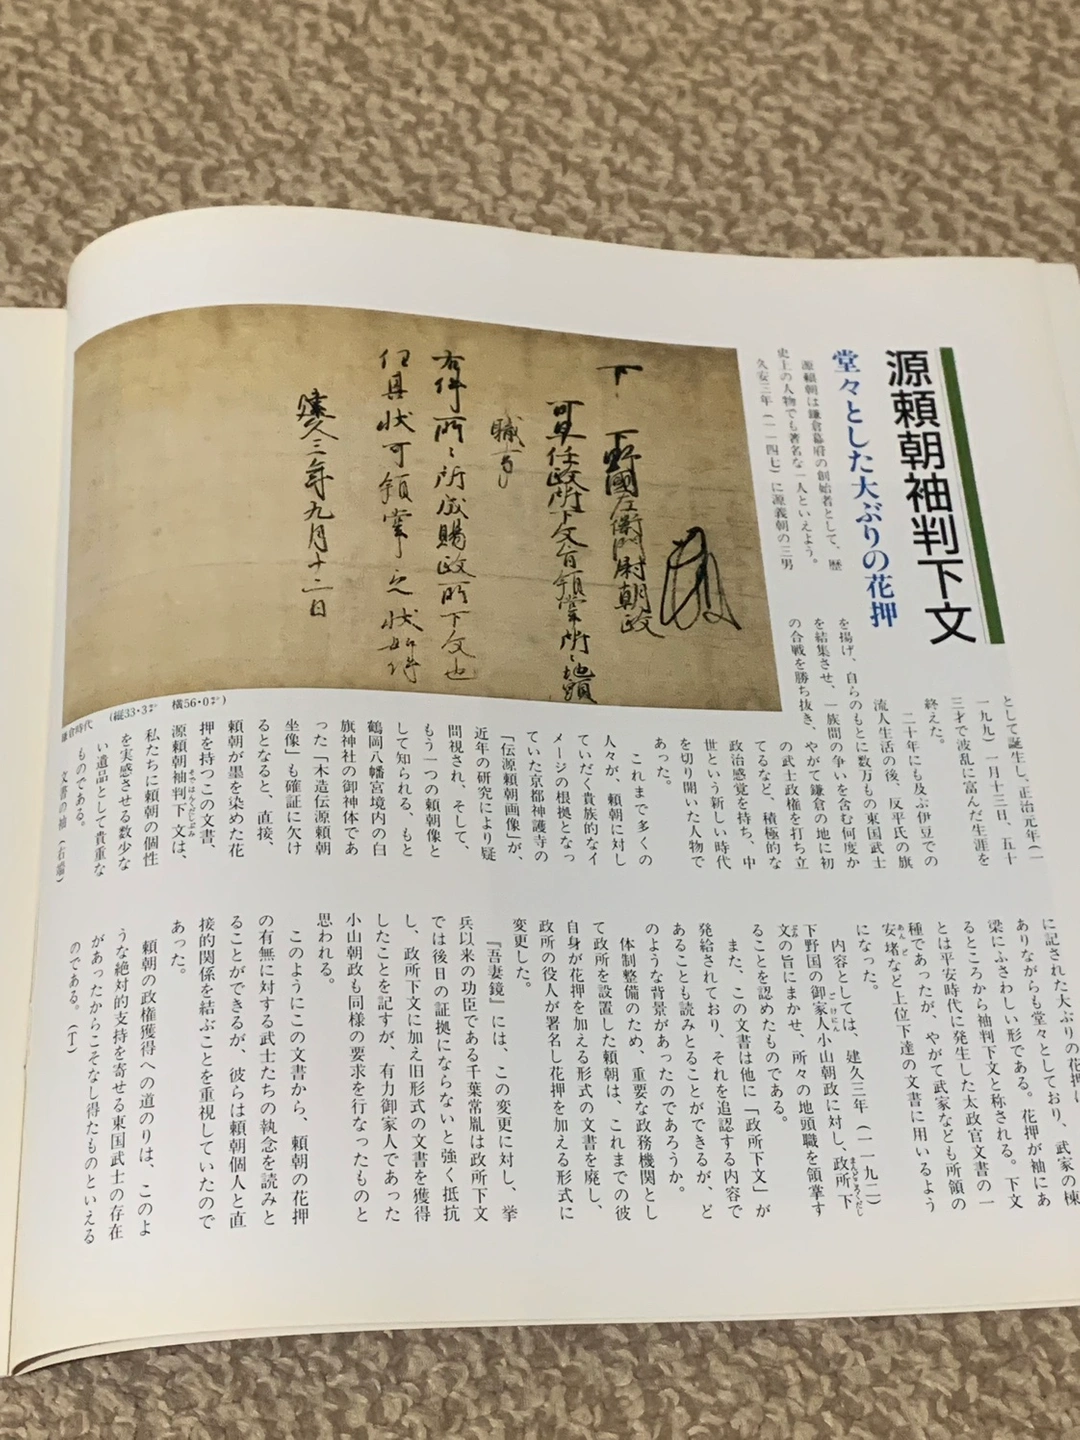 源頼朝袖判下文
堂々とした大ぶりの花押
源頼朝は鎌倉幕府の創始者として、歴
史上の人物でも著名な一人といえよう。
久安三年(一一四七)に源義朝の三男
として誕生し、正治元年(一
一九九)一月十三日、五十
三才で波乱に富んだ生涯を
終えた。
二十年にも及ぶ伊豆での
流人生活の後、反平氏の旗
を揚げ、自らのもとに数万もの東国武士
を結集させ、一族間の争いを含む何度か
の合戦を勝ち抜き、やがて鎌倉の地に初
の武士政権を打ち立
てるなど、積極的な
政治感覚を持ち、中
世という新しい時代
を切り開いた人物で
あった。
これまで多くの
人々が、頼朝に対し
ていだく貴族的なイ
メージの根拠となっ
ていた京都神護寺の
「伝源頼朝画像」が、
近年の研究により疑
問視され、そして、
もう一つの頼朝像と
して知られる、もと
鶴岡八幡宮境内の白
旗神社の御神体であ
った「木造伝源頼朝
坐像」も確証に欠け
るとなると、直接、
頼朝が墨を染めた花
押を持つこの文書、
源頼朝袖判下文は、
私たちに頼朝の個性
を実感させる数少な
い遺品として貴重な
ものである。
文書の袖(右端)
に記された大ぶりの花押は
ありながらも堂々としており、武家の棟
梁にふさわしい形である。花押が袖にあ
るところから袖判下文と称される。下文
とは平安時代に発生した太政官文書の一
種であったが、やがて武家なども所領の
安堵など上位下達の文書に用いるよう
になった。
内容としては、建久三年(一一九二)
下野国の御家人小山朝政に対し、政所下
文の旨にまかせ、所々の地頭職を領掌す
ることを認めたものである。
また、この文書は他に「政所下文」が
発給されており、それを追認する内容で
あることも読みとることができるが、ど
のような背景があったのであろうか。
体制整備のため、重要な政務機関とし
て政所を設置した頼朝は、これまでの彼
自身が花押を加える形式の文書を廃し、
政所の役人が署名し花押を加える形式に
変更した。
『吾妻鏡』には、この変更に対し、挙
兵以来の功臣である千葉常胤は政所下文
では後日の証拠にならないと強く抵抗
し、政所下文に加え旧形式の文書を獲得
したことを記すが、有力御家人であった
小山朝政も同様の要求を行なったものと
思われる。
このようにこの文書から、頼朝の花押
の有無に対する武士たちの執念を読みと
ることができるが、彼らは頼朝個人と直
接的関係を結ぶことを重視していたので
あった。
頼朝の政権獲得への道のりは、このよ
うな絶対的支持を寄せる東国武士の存在
があったからこそなし得たものといえる
のである。(T)
下 下野國左衛門尉朝政
可早任政所下文旨領掌所々地頭
職事
右件所々所成賜政所下文也
任其状可領掌之状如件
建久三年九月十二日
鎌倉時代 (縦33・3㌢ 横56・0㌢)